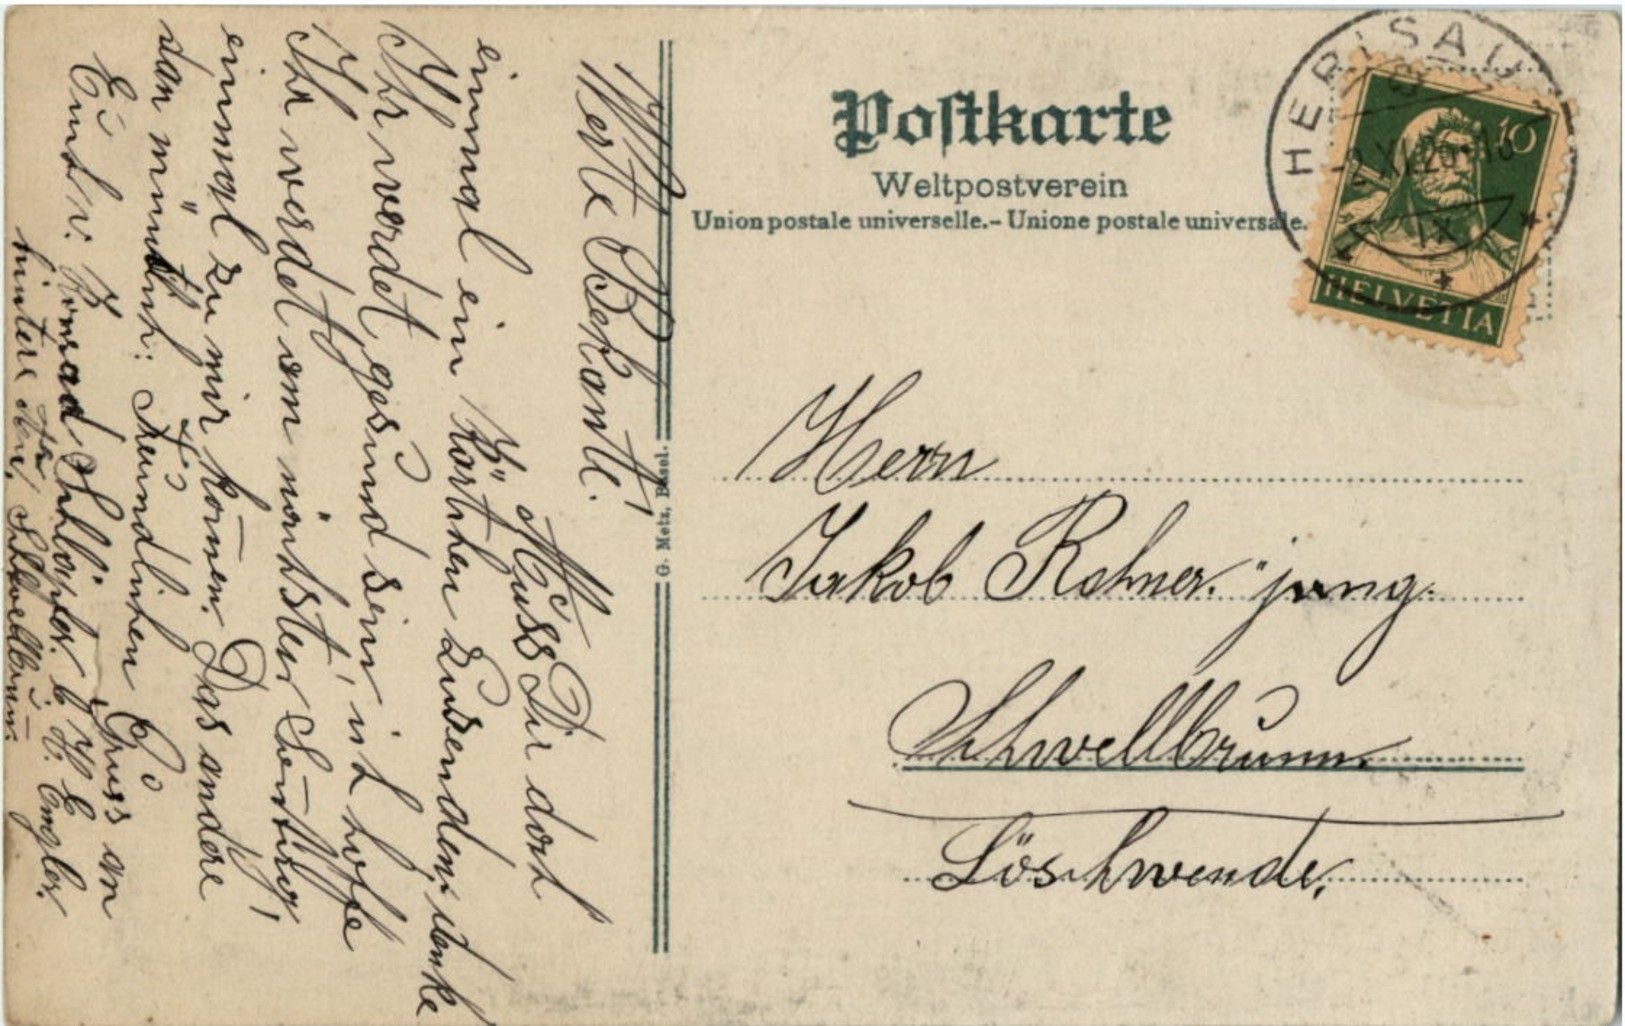 Postkarte
Weltpostverein
Union postale universelle. – Unione postale universale.
HERISAU
2.XI.20-18
IX
10
HELVETIA
G. Metz, Basel.
Herrn
Jakob Rohner. jung.
Schwellbrunn.
Löschwende.
Werte Bekante!
Muss Dir doch
einmal ein Kärtchen zusenden, denke
Ihr werdet gesund sein, ich hoffe
Ihr werdet am nächster Sontag,
einmal zu mir komen. Das andere
dan mündlich: Freundlichen Gruss an
Euch v. Konrad Schläpfer b. H. Emgler.
hintere Schwellbrunn.